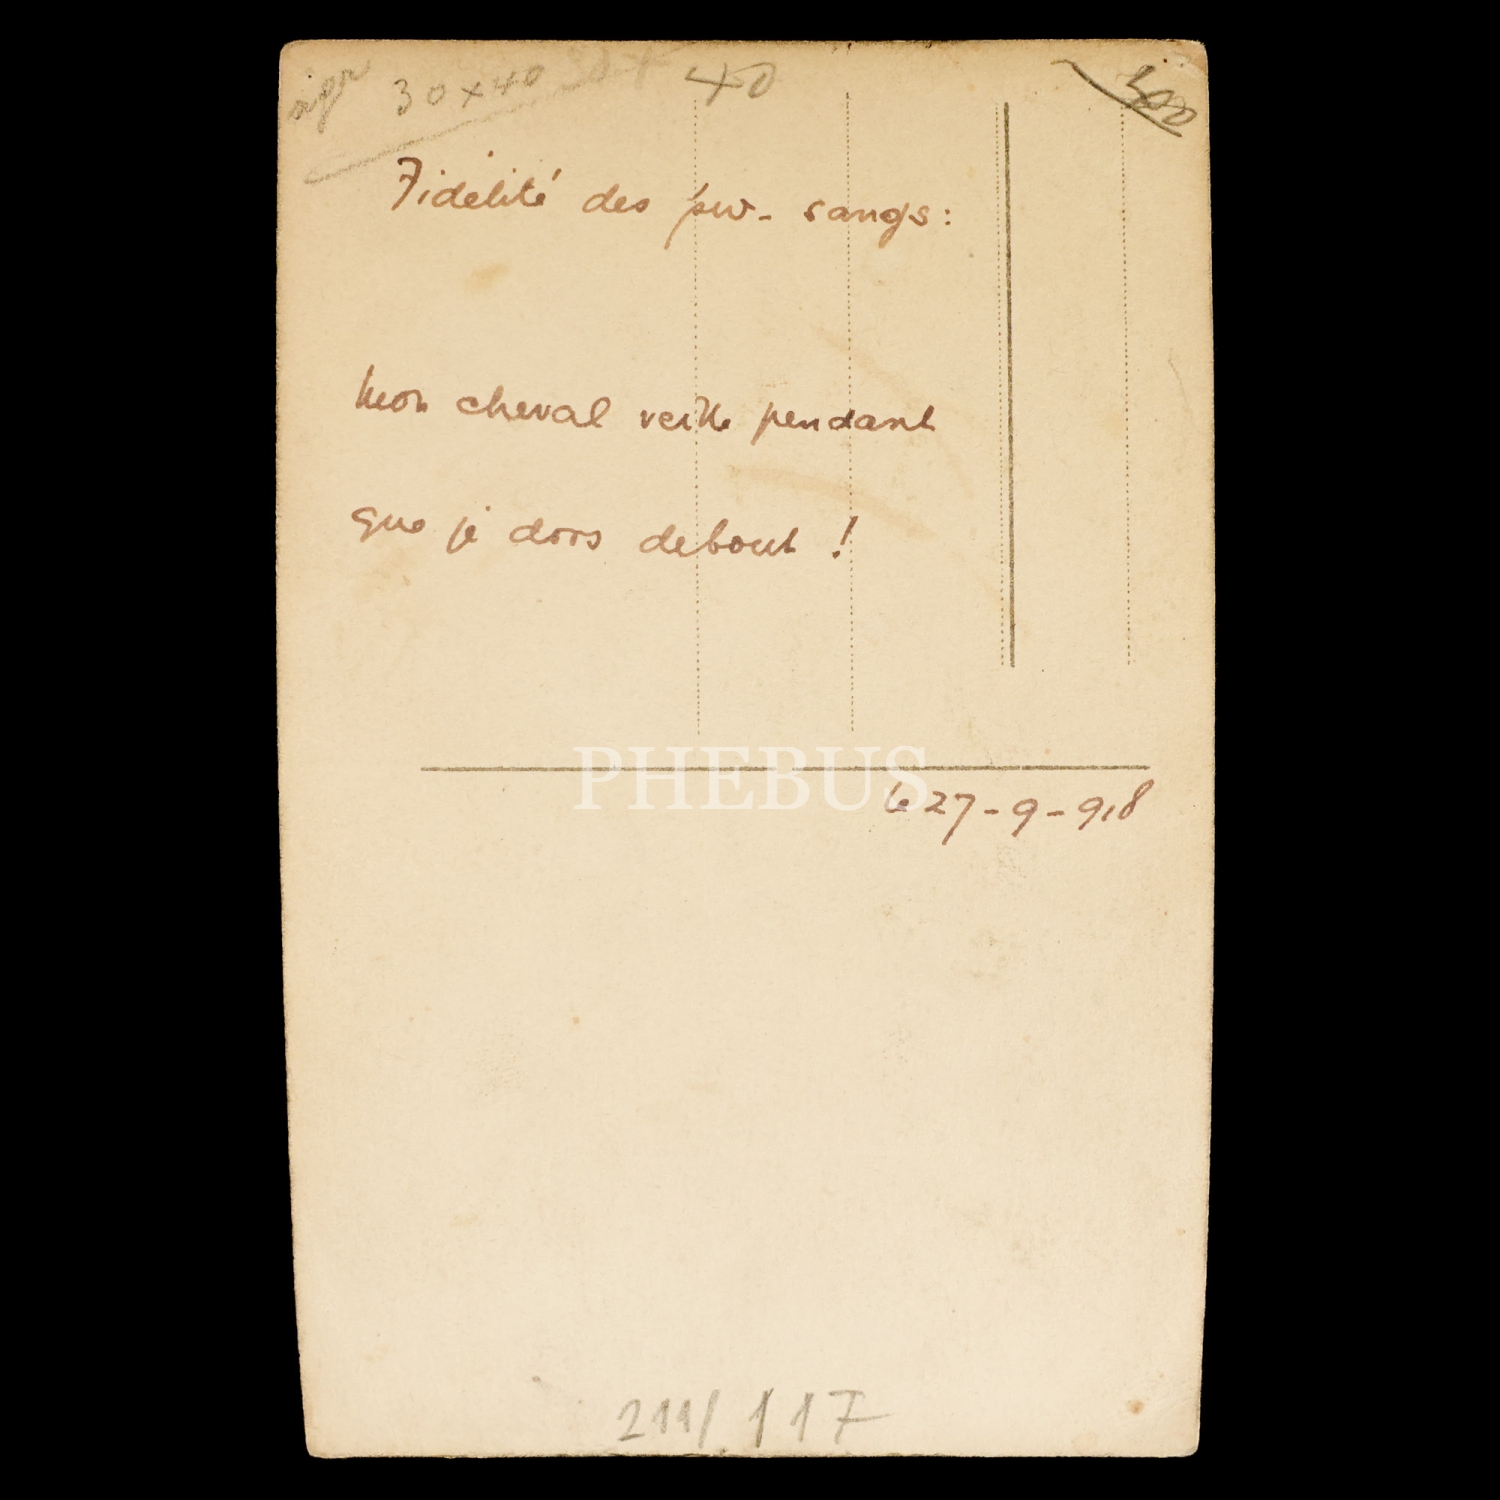 30 x 40
40
300
Fidélité des pur-sangs:
Mon cheval veille pendant
que je dors debout !
PHEBUS
le 27-9-918
211/117